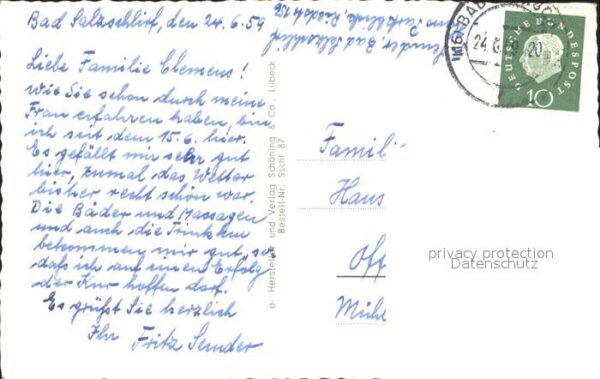 Bad Salzschlirf, den 24.6.59
Liebe Familie Clemens!
Wie Sie schon durch meine
Frau erfahren haben, bin
ich seit dem 15.6. hier.
Es gefällt mir sehr gut
hier, zumal das Wetter
bisher recht schön war.
Die Bäder und Massagen
und auch die Trinkken
bekommen mir gut, so
daß ich auf einen Erfolg
der Kur hoffen darf.
Es grüßt Sie herzlich
Ihr Fritz Sender
Sender, Bad Salzschlirf
Herstellung und Verlag Schöning & Co., Lübeck
Bestell-Nr. Sschl 87
(16) BAD
24.6.59-20
DEUTSCHE BUNDESPOST
10
Famili
Haus
Off
Mühl
privacy protection
Datenschutz